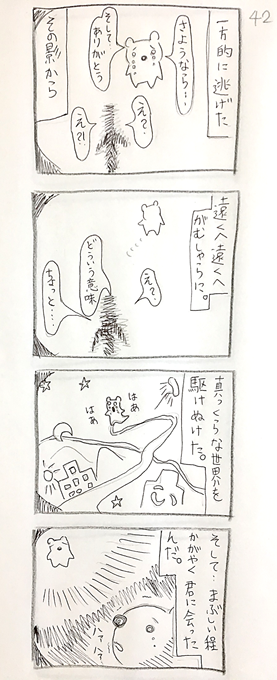 42
一方的に逃げた
さようなら…
そして、
ありがとう
え?
え?!
その影から
遠くへ遠くへ
がむしゃらに。
え?
どういう意味
ちょっと…
真っくらな世界を
駆けぬけた。
はあ
はあ
そして…まぶしい程
かがやく君に会った
んだ。
ハァハァ